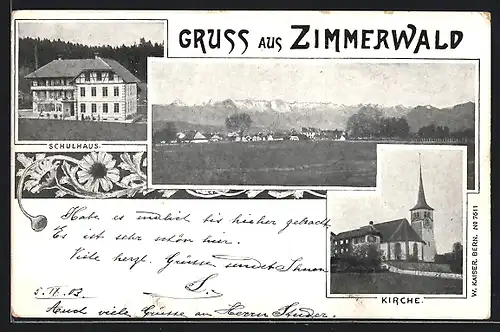 GRUSS AUS ZIMMERWALD
SCHULHAUS.
Habe es endlich bis hieher gebracht
Es ist sehr schön hier.
Viele herzl. Grüsse sendet Ihnen
S.
5. VI. 03
Auch viele Grüsse an Herrn Studer.
KIRCHE.
W. KAISER. BERN. No 7511